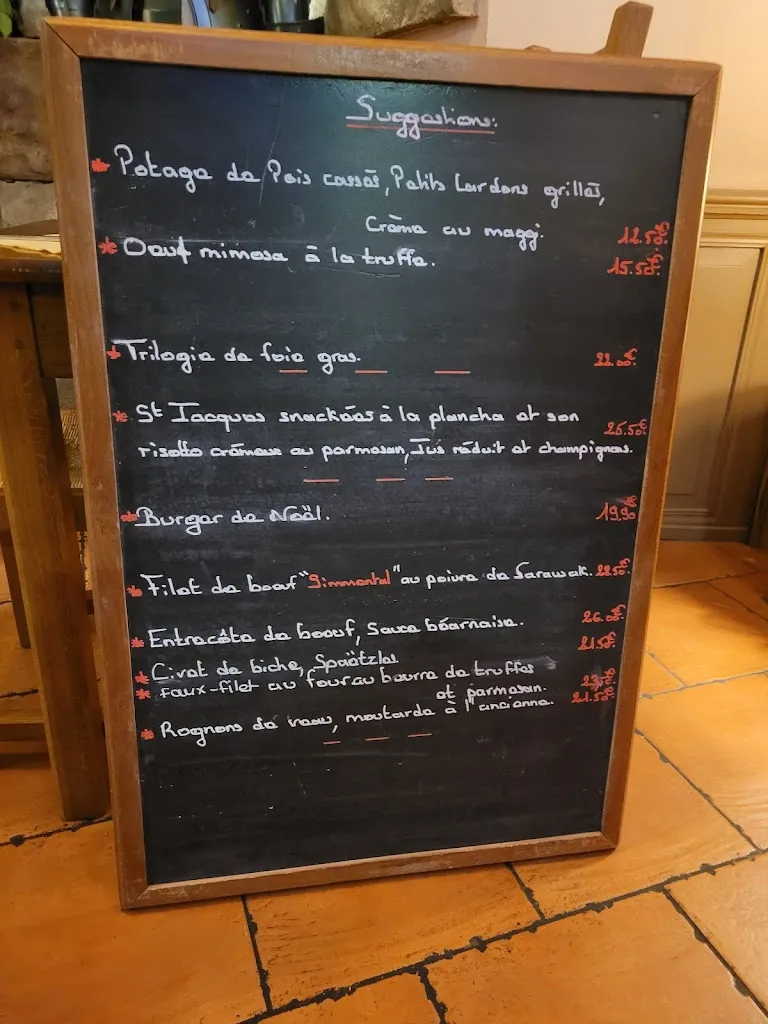 Suggestions:
* Potage de Pois cassés, Petits Lardons grillés,
Crème au maggi. 12.50€
* Oeuf mimosa à la truffe. 15.50€
* Trilogie de foie gras. 22.00€
* St Jacques snackées à la plancha et son 25.50€
risotto crémeux au parmesan, Jus réduit et champignons.
* Burger de Noël. 19.90€
* Filet de boeuf "Simmental" au poivre de Sarawak. 28.50€
* Entrecôte de boeuf, Sauce béarnaise. 26.00€
* Civet de biche, Spaëtzles 21.50€
* Faux-filet au four au beurre de truffes
et parmesan.
* Rognons de veau, moutarde à l'ancienne. 21.50€